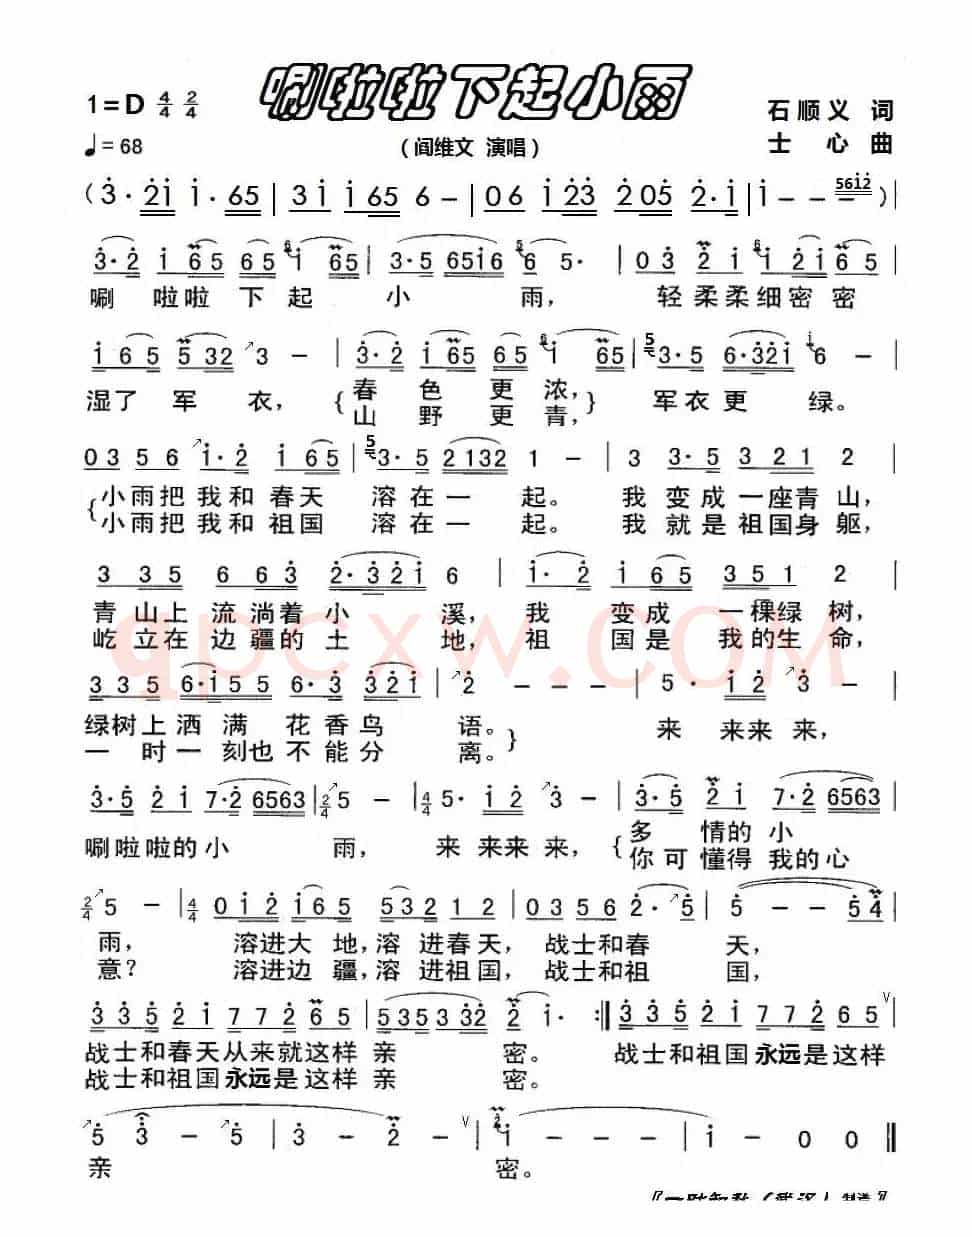 唰啦啦下起小雨
1=D 4/4 2/4
♩=68
（阎维文 演唱）
石顺义 词
士 心 曲
(3· 21 1· 65 | 31 165 6 - | 06 123 205 2·1 | 1 - - 5612 ) |
3·2 1 65 65 6 1 65 | 3·5 6516 5 6 5· | 03 21 6 1 21 65
唰 啦啦 下 起 小 雨， 轻柔柔细密密
165 532 3 - | 3·2 165 65 6 1 65 | 5 3·5 6·321 1 6 - |
湿了 军 衣，{春 色 更 浓，} 军衣更 绿。
山 野 更 青，
0356 1·2 165 | 5 3·5 2132 1 - | 3 3·5 321 2 |
{小雨把我和春天 溶在一 起。 我 变成一座青山，
小雨把我和祖国 溶在一 起。 我 就是祖国身躯，
3 35 663 2·321 6 | 1·2 165 351 2 |
青山上流淌着小 溪， 我 变成 一棵绿树，
屹立在边疆的土 地， 祖 国是 我的生命，
335 6·155 6·3 321 | 2 - - - | 5· 12 3 - |
绿树上洒满花香鸟 语。} 来 来来来，
一时一刻也不能分 离。
3·5 21 7·2 6563 | 2/4 5 - | 4/4 5· 12 3 - | 3·5 21 7·2 6563
唰啦啦的小 雨， 来 来来 来，{多 情的小
你可懂得我的心
2/4 5 - | 4/4 0121 65 532 12 | 0356 2· 5 | 5 - - 54 |
雨， 溶进大地，溶进春天， 战士和春 天，
意？ 溶进边疆，溶进祖国， 战士和祖 国，
335 21 772 65 | 535332 2 1· :| 335 21 772 65 V
战士和春天从来就这样亲 密。 战士和祖国永远是这样
战士和祖国永远是这样亲 密。
5 3 - 5 | 3 - 2 - V | 2 1 - - - | 1 - 0 0 ‖
亲 密。
qpcxw.com